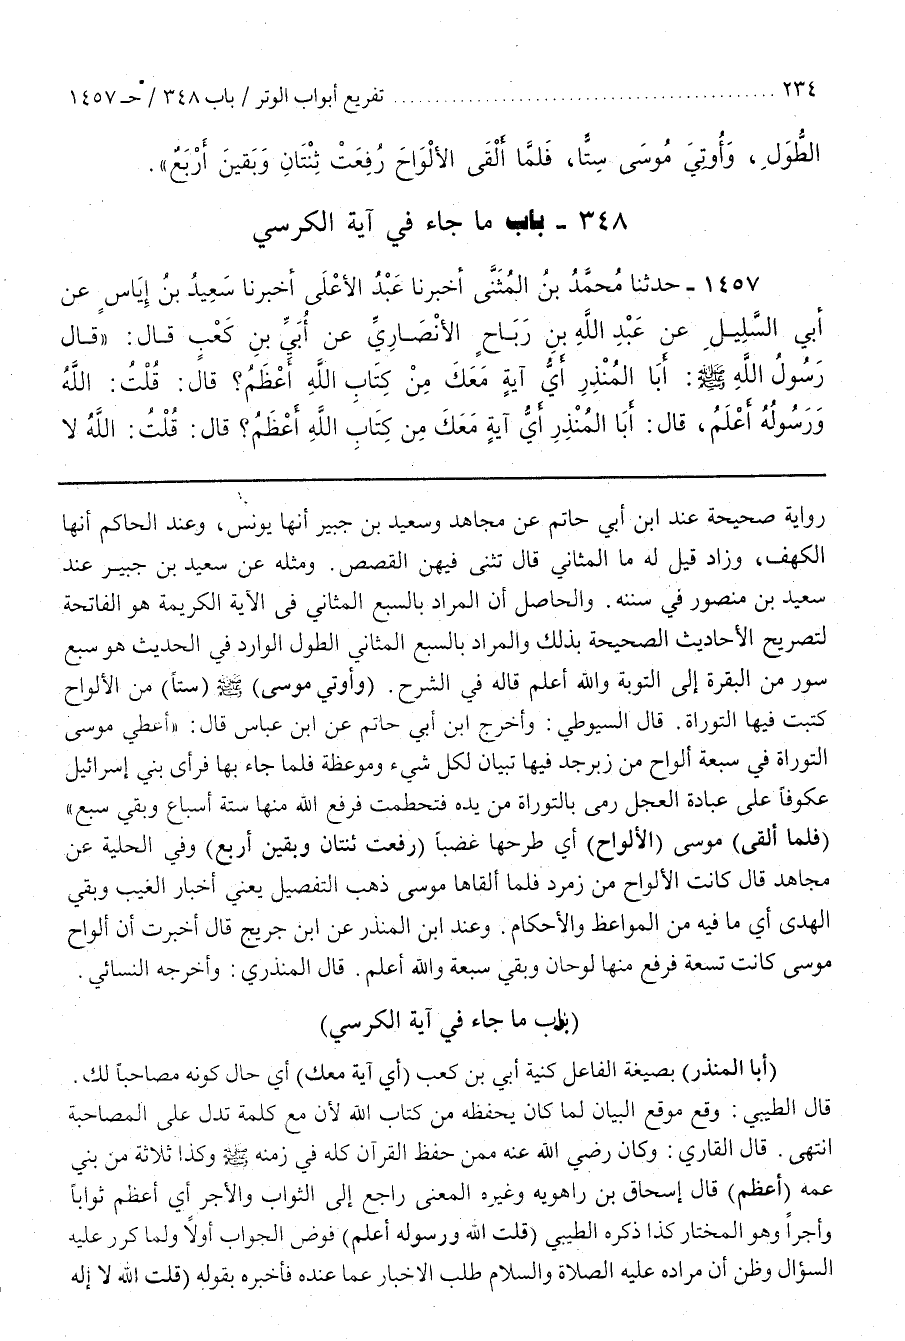 ٢٣٤ ........ تفريع أبواب الوتر / باب ٣٤٨ / حـ ١٤٥٧
الطُّوَلِ، وَأُوتِيَ مُوسَى سِتًّا، فَلمَّا أَلْقَى الألْوَاحَ رُفِعَتْ ثِنْتَانِ وَبَقينَ أَرْبَعٌ».
٣٤٨ ـ باب ما جاء في آية الكرسي
١٤٥٧ ـ حدثنا مُحمَّدُ بنُ المُثَنَّى أخبرنا عَبْدُ الأعْلَى أخبرنا سَعِيدُ بنُ إِيَاسٍ عن
أبي السَّلِيلِ عن عَبْدِ اللَّهِ بنِ رَبَاحٍ الأنْصَارِيِّ عن أُبَيِّ بنِ كَعْبٍ قال: «قال
رَسُولُ اللَّهِ ﷺ: أبَا المُنْذِرِ أَيُّ آيةٍ مَعَكَ مِنْ كِتَابِ اللَّهِ أَعْظَمُ؟ قال: قُلْتُ: اللَّهُ
وَرَسُولُهُ أَعْلَمُ، قال: أَبَا المُنْذِرِ أَيُّ آيَةٍ مَعَكَ مِن كِتَابِ اللَّهِ أَعْظَمُ؟ قال: قُلْتُ: اللَّهُ لا
رواية صحيحة عند ابن أبي حاتم عن مجاهد وسعيد بن جبير أنها يونس، وعند الحاكم أنها
الكهف، وزاد قيل له ما المثاني قال تثنى فيهن القصص. ومثله عن سعيد بن جبير عند
سعيد بن منصور في سننه. والحاصل أن المراد بالسبع المثاني في الآية الكريمة هو الفاتحة
لتصريح الأحاديث الصحيحة بذلك والمراد بالسبع المثاني الطول الوارد في الحديث هو سبع
سور من البقرة إلى التوبة والله أعلم قاله في الشرح. (وأوتي موسى) ﷺ (ستاً) من الألواح
كتبت فيها التوراة. قال السيوطي: وأخرج ابن أبي حاتم عن ابن عباس قال: «أعطي موسى
التوراة في سبعة ألواح من زبرجد فيها تبيان لكل شيء وموعظة فلما جاء بها فرأى بني إسرائيل
عكوفاً على عبادة العجل رمى بالتوراة من يده فتحطمت فرفع الله منها ستة أسباع وبقي سبع»
(فلما ألقى) موسى (الألواح) أي طرحها غضباً (رفعت ثنتان وبقين أربع) وفي الحلية عن
مجاهد قال كانت الألواح من زمرد فلما ألقاها موسى ذهب التفصيل يعني أخبار الغيب وبقي
الهدى أي ما فيه من المواعظ والأحكام. وعند ابن المنذر عن ابن جريج قال أخبرت أن ألواح
موسى كانت تسعة فرفع منها لوحان وبقي سبعة والله أعلم. قال المنذري: وأخرجه النسائي.
(باب ما جاء في آية الكرسي)
(أبا المنذر) بصيغة الفاعل كنية أبي بن كعب (أي آية معك) أي حال كونه مصاحباً لك.
قال الطيبي: وقع موقع البيان لما كان يحفظه من كتاب الله لأن مع كلمة تدل على المصاحبة
انتهى. قال القاري: وكان رضي الله عنه ممن حفظ القرآن كله في زمنه ﷺ وكذا ثلاثة من بني
عمه (أعظم) قال إسحاق بن راهويه وغيره المعنى راجع إلى الثواب والأجر أي أعظم ثواباً
وأجراً وهو المختار كذا ذكره الطيبي (قلت الله ورسوله أعلم) فوض الجواب أولاً ولما كرر عليه
السؤال وظن أن مراده عليه الصلاة والسلام طلب الاخبار عما عنده فأخبره بقوله (قلت الله لا إله